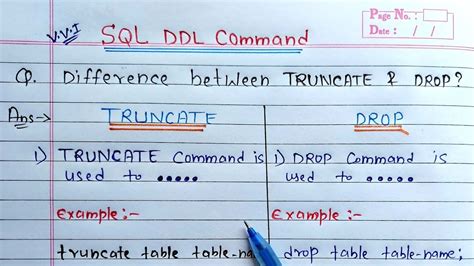 Page No. :
Date : / /
V.V.I SQL DDL Command
Q. Difference between TRUNCATE & DROP?
Ans-> TRUNCATE DROP
1) TRUNCATE Command is 1) DROP Command is
used to ..... used to .....
Example :- Example :-
truncate table table-name drop table table-name;